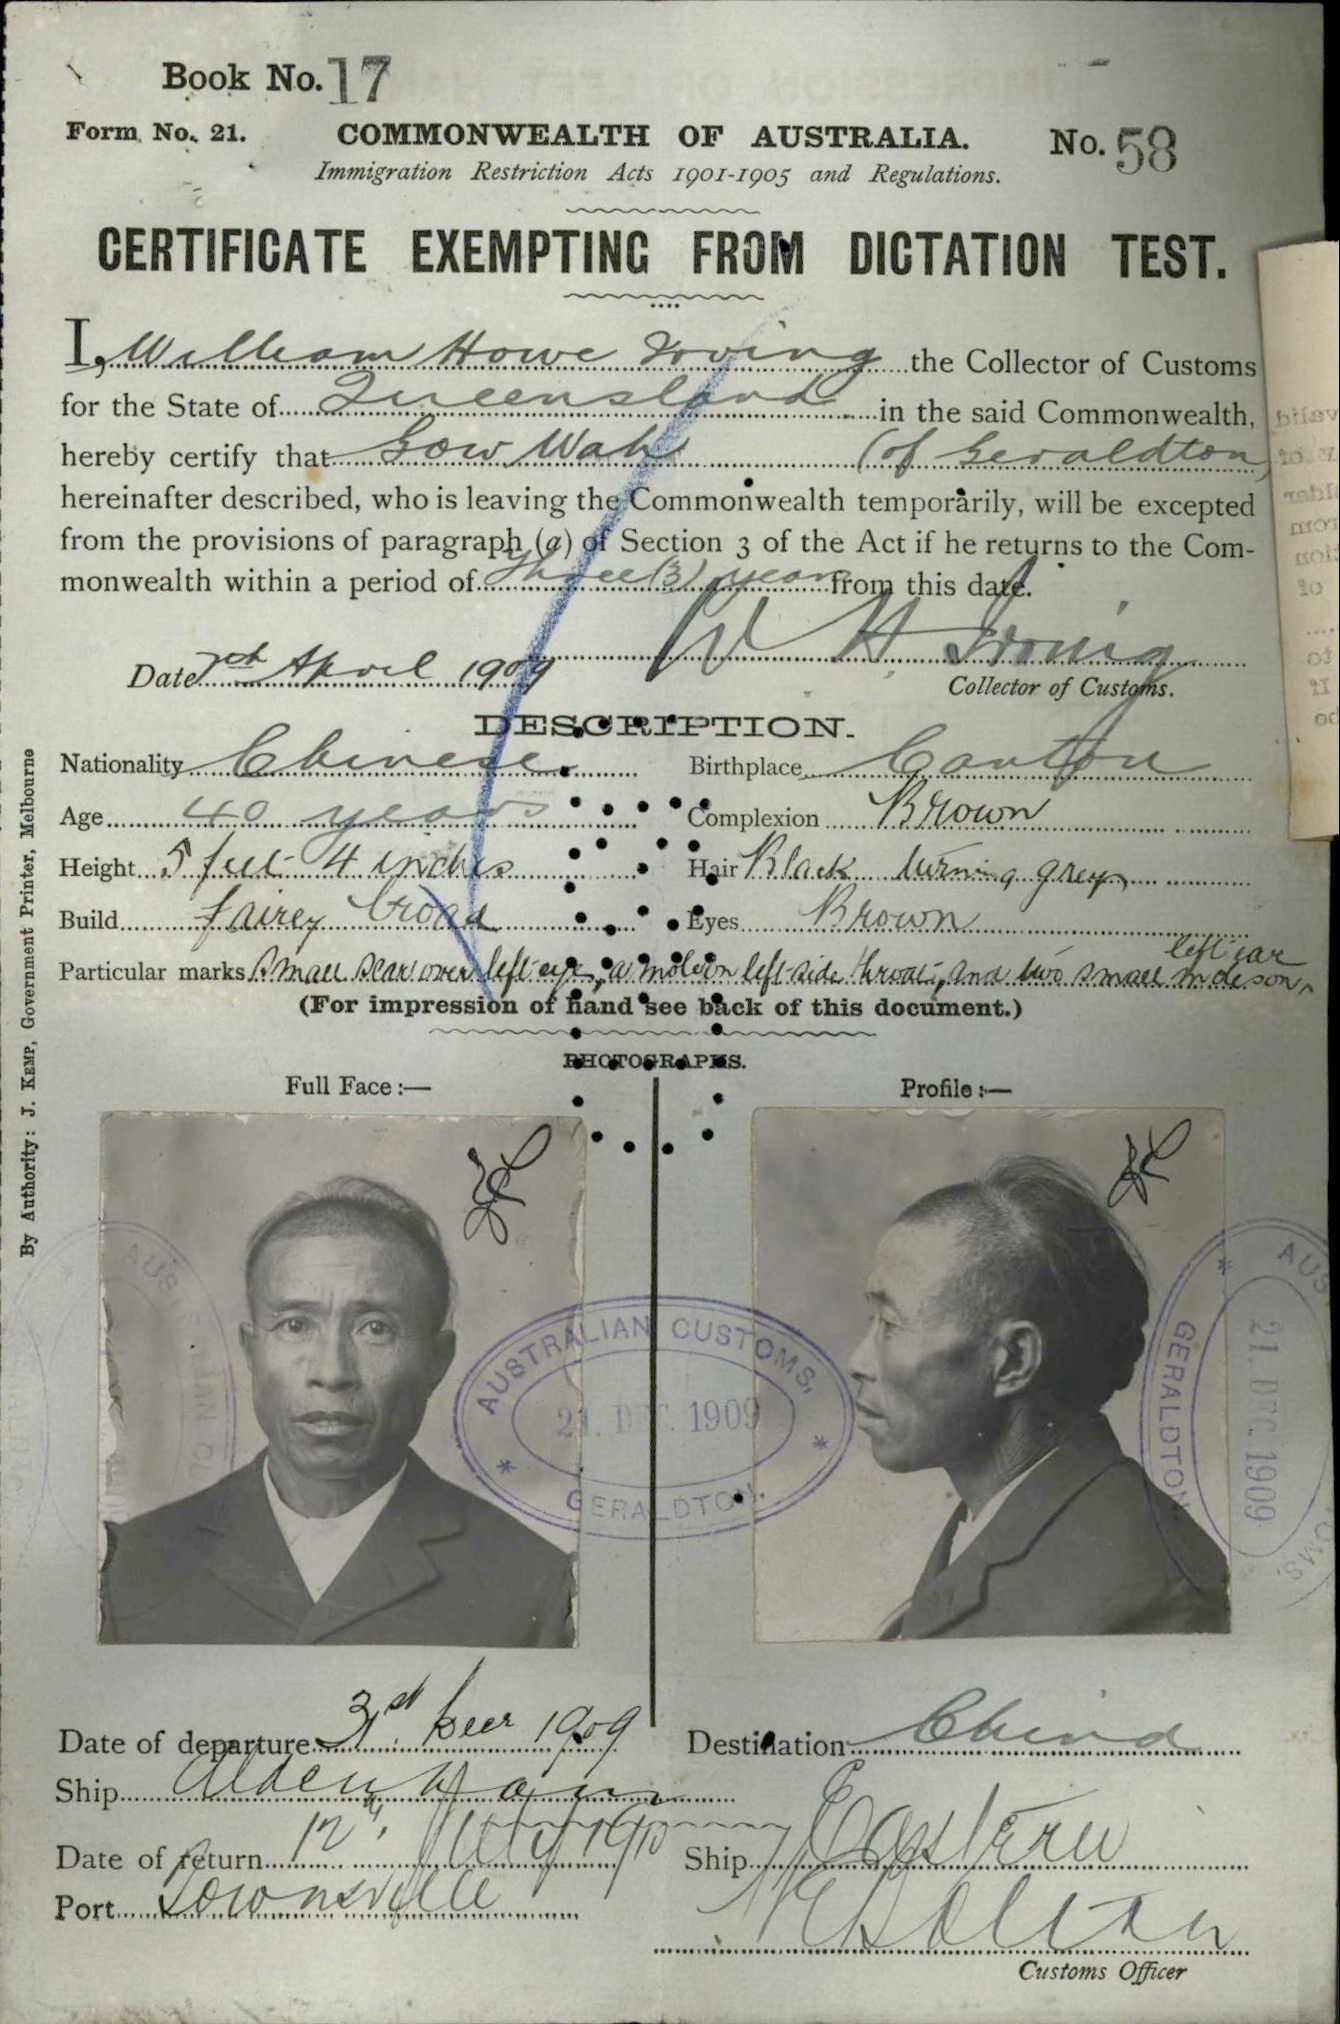 Book No. 17
Form No. 21. COMMONWEALTH OF AUSTRALIA. No. 58
Immigration Restriction Acts 1901-1905 and Regulations.
CERTIFICATE EXEMPTING FROM DICTATION TEST.
I, William Howe Irving the Collector of Customs
for the State of Queensland in the said Commonwealth,
hereby certify that Gow Wah (of Geraldton)
hereinafter described, who is leaving the Commonwealth temporarily, will be excepted
from the provisions of paragraph (a) of Section 3 of the Act if he returns to the Com-
monwealth within a period of three (3) years from this date.
W H Irving
Date April 1909
Collector of Customs.
DESCRIPTION.
Nationality Chinese Birthplace Canton
Age 40 years Complexion Brown
Height 5 feet 4 inches Hair Black turning grey
Build fairly broad Eyes Brown
Particular marks Small scar over left eye, a mole on left side throat, and two small moles on left ear
(For impression of hand see back of this document.)
PHOTOGRAPHS.
Full Face :— Profile :—
AUSTRALIAN CUSTOMS.
21. DEC. 1909
GERALDTON.
GERALDTON
21. DEC. 1909
Date of departure 31st Decr 1909 Destination China
Ship Aldenham
Date of return 12th July 1910 Ship Eastern
Port Townsville
Customs Officer
By Authority: J. KEMP, Government Printer, Melbourne